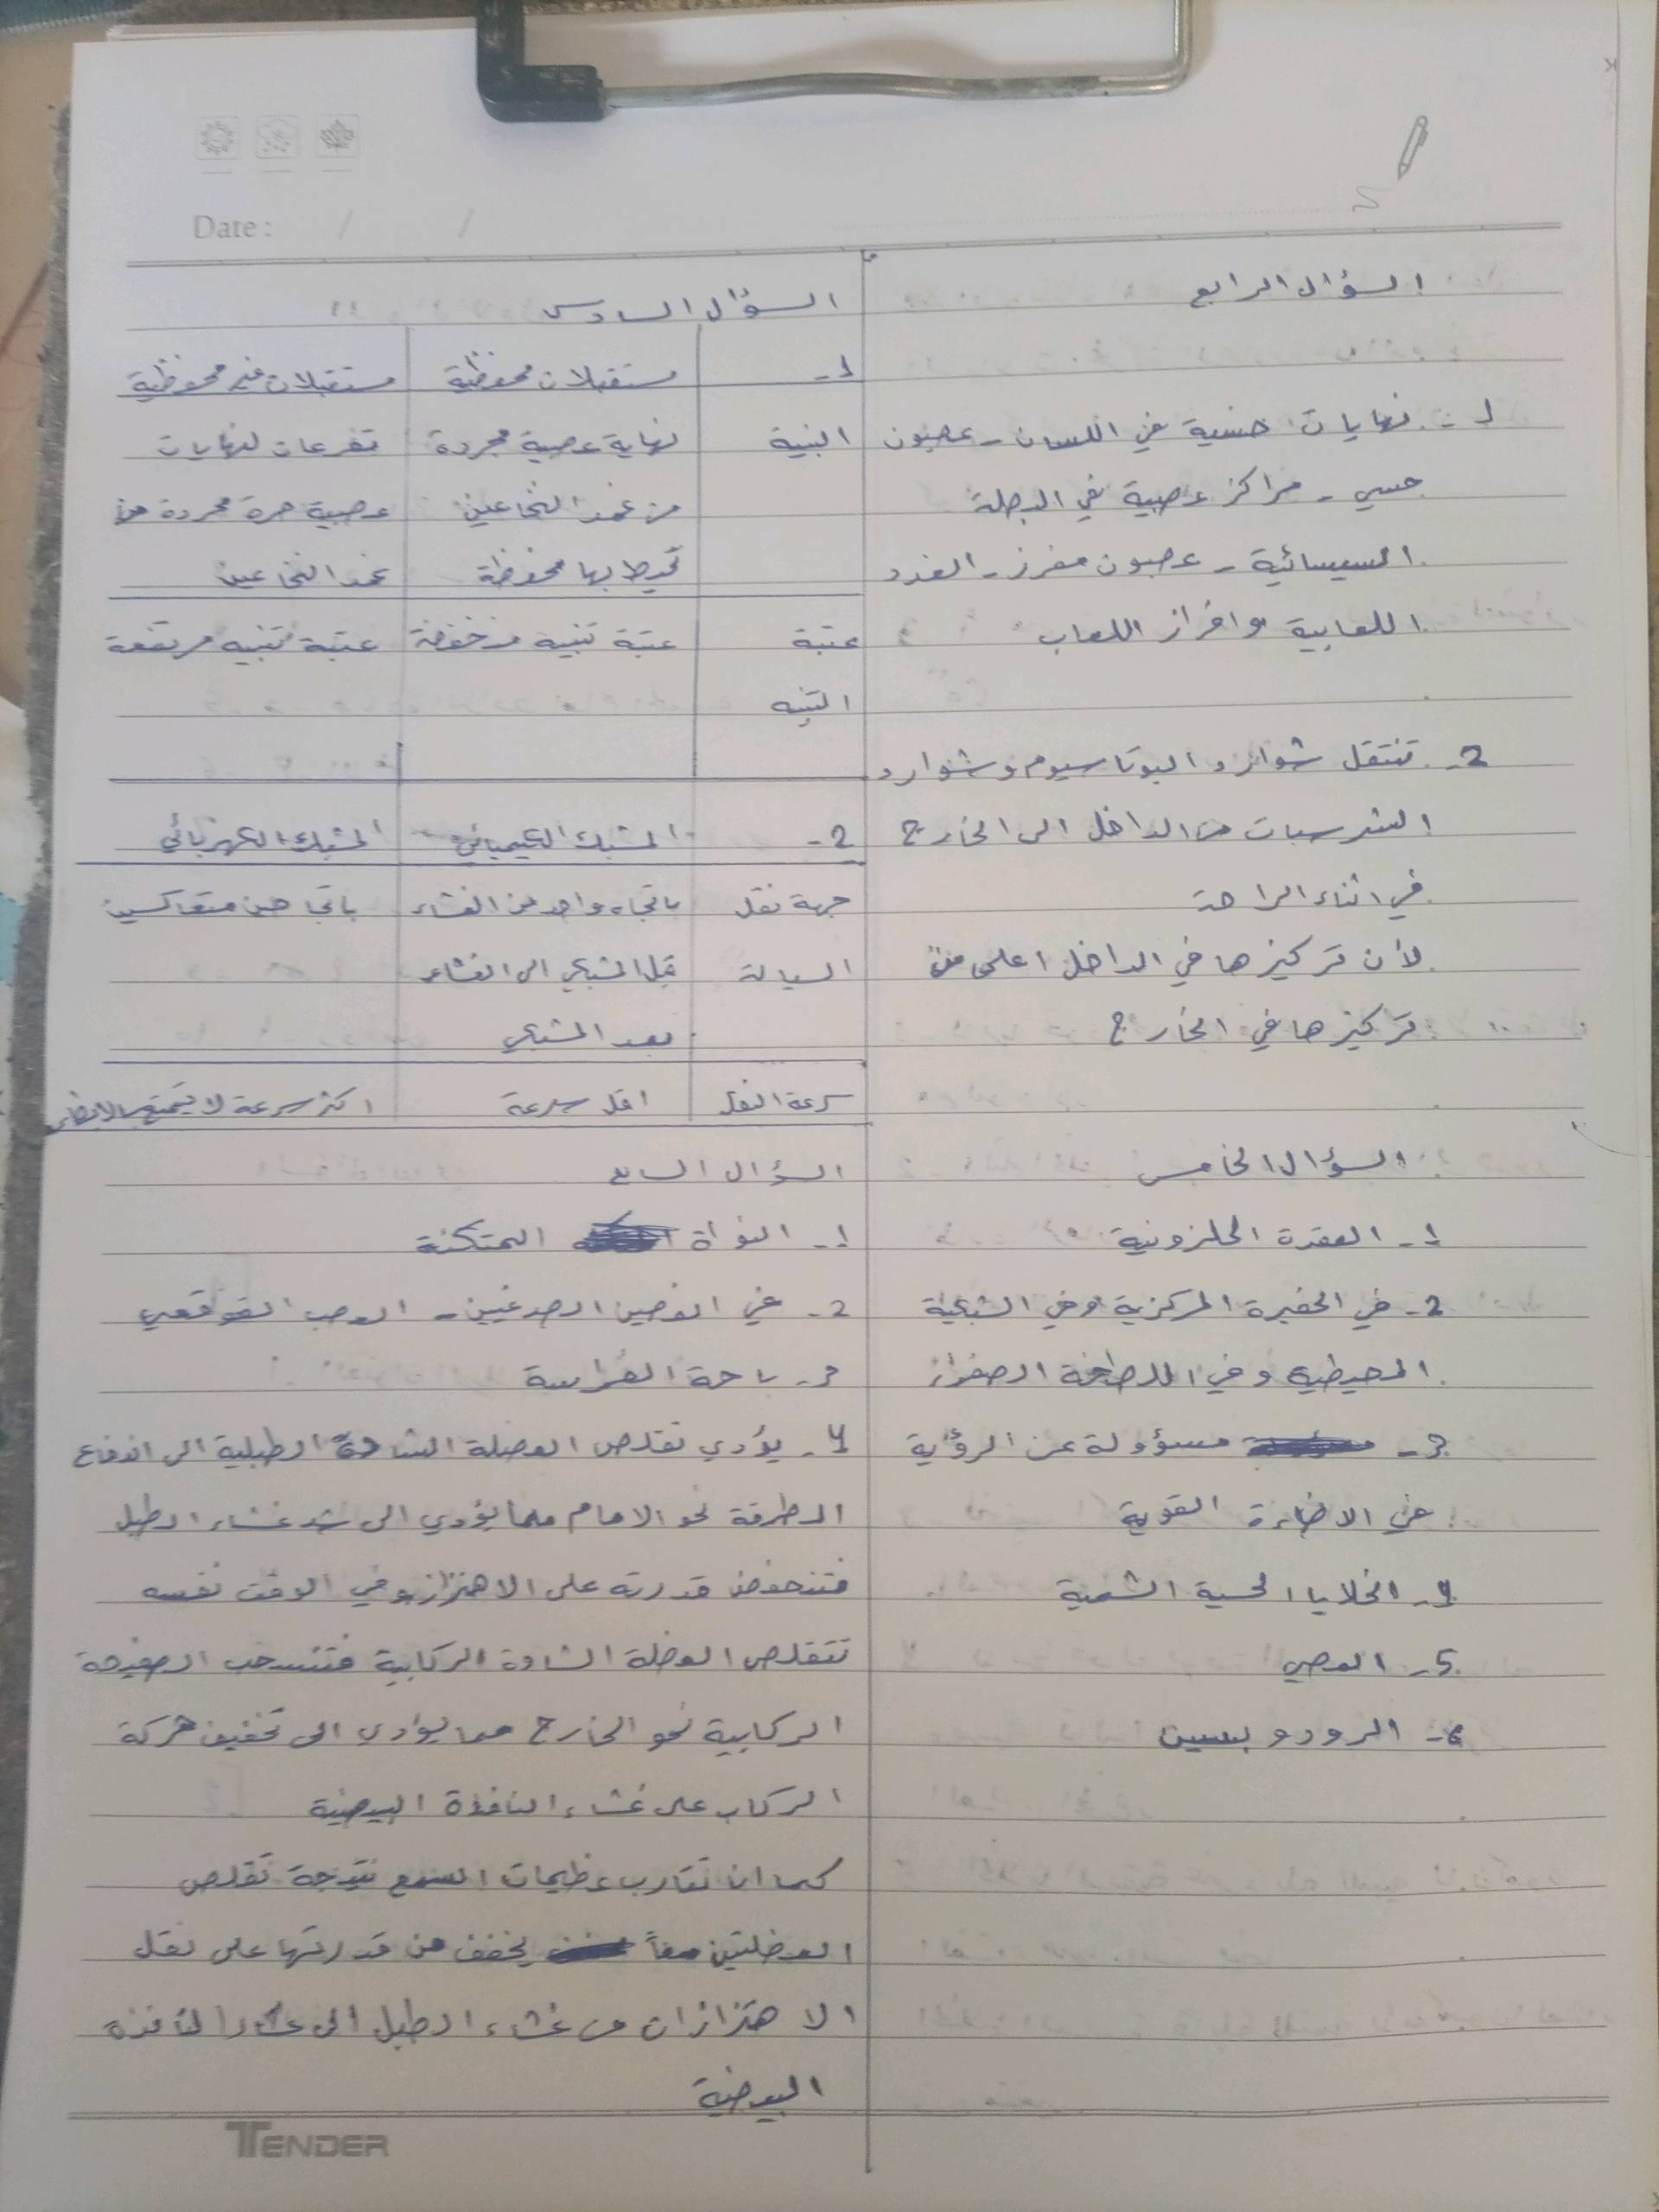 Date: / /
السؤال الرابع
1- نهايات حسية في اللسان - عصبون
حسي - مراكز عصبية في البصلة
السيسائية - عصبون مفرز - الغدد
اللعابية وافراز اللعاب
2- تنتقل شوارد البوتاسيوم وشوارد
الشرسبات من الداخل الى الخارج
في اثناء الراحة
لأن تركيزها في الداخل اعلى من
تركيزها في الخارج
السؤال الخامس
1- العقدة الحلزونية
2- في الحفيرة المركزية وفي الشبكية
المحيطية وفي اللطخة الصفراء
3- مسؤولة عن الرؤية
في الاضاءة القوية
4- الخلايا الحسية الشمية
5- العصي
6- الرودوبسين
السؤال السادس
1- مستقبلات محفظية مستقبلات غير محفظية
البنية نهاية عصبية مجردة تفرعات لنهايات
من غمد النخاعين عصبية حرة مجردة من
تحيط بها محفظة غمد النخاعين
عتبة عتبة تنبيه منخفضة عتبة تنبيه مرتفعة
التنبيه
2- المشبك الكيميائي المشبك الكهربائي
جهة نقل باتجاه واحد من الغشاء باتجاهين متعاكسين
السيالة قبل المشبكي الى الغشاء
بعد المشبكي
سرعة النقل اقل سرعة اكثر سرعة لا يتمتع بالابطاء
السؤال السابع
1- النواة المتكئة
2- في الفصين الصدغيين - العصب القوقعي
3- باحة الفراسة
4- يؤدي تقلص العضلة الشادة الطبلية الى اندفاع
المطرقة نحو الامام مما يؤدي الى شد غشاء الطبل
فتنخفض قدرته على الاهتزاز وفي الوقت نفسه
تتقلص العضلة الشادة الركابية فتنسحب الصفيحة
الركابية نحو الخارج مما يؤدي الى تخفيف حركة
الركاب على غشاء النافذة البيضية
كما ان تقارب عظيمات السمع نتيجة تقلص
العضلتين معاً يخفف من قدرتها على نقل
الاهتزازات من غشاء الطبل الى غشاء النافذة
البيضية
TENDER